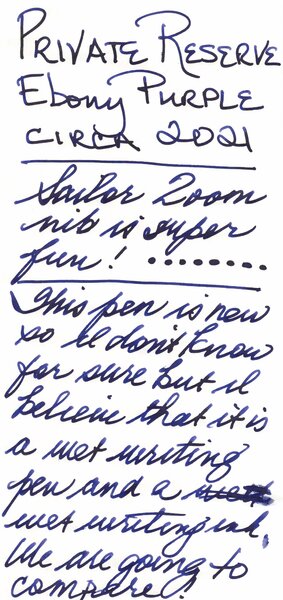 PRIVATE RESERVE
Ebony PURPLE
CIRCA 2021
Sailor Zoom
nib is super
fun! .........
This pen is new
so I don't know
for sure but I
believe that it is
a wet writing
pen and a wet
wet writing ink.
We are going to
compare!